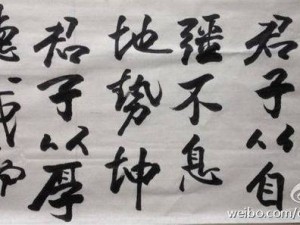 君子以自
彊不息
地勢坤
君子以厚
weibo.com/